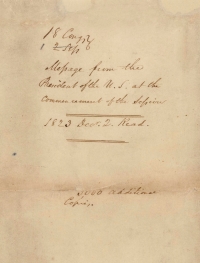 18 Congs
1 Sess
Message from the
President of the U.S. at the
commencement of the Session
1823 Dec. 2. Read.
additional
Copies